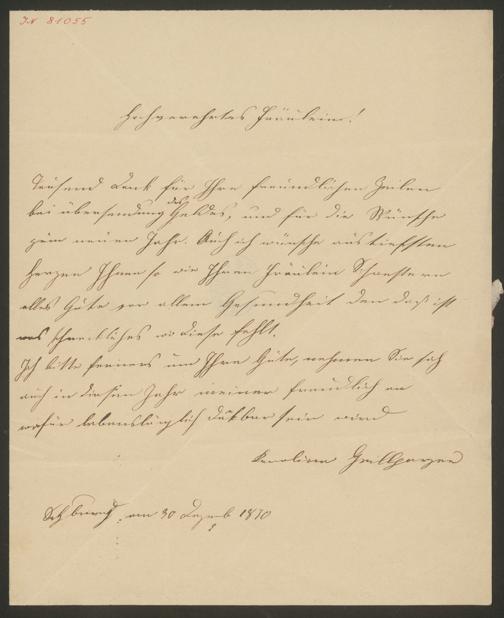 I.N 81055
Hochverehrtes Fräulein!
Tausend Dank für Ihre freundlichen Zeilen
bei übersendung des Geldes, und für die Wünsche
zum neuen Jahr. Auch ich wünsche aus tiefsten
Herzen Ihnen so wie Ihren Fräulein Schwestern
alles Gute vor allem Gesundheit den das ist
was schreckliches wo diese fehlt.
Ich bitte ferners um Ihre Güte, nehmen Sie sich
auch in diesen Jahr meiner freundlich an
wofür lebenslänglich dankbar sein wird
Karoline Grillparzer
am 30 Dezemb 1870